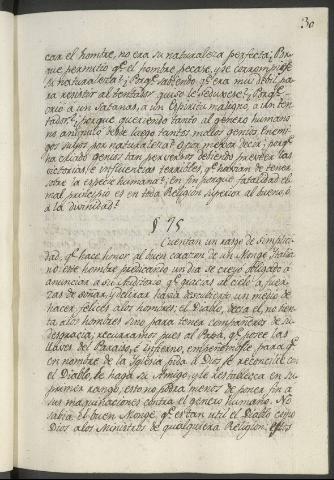 30
car el hombre, no era su naturaleza perfecta? Por
que permitio q.e el hombre pecase, y se corrompiese
su naturaleza? Porq.e sabiendo q.e era mui debil pa
ra resistir al tentador quiso le seduxese? Porq.e
crió a un Satanas, a un Espiritu maligno, a un ten
tador? porque queriendo tanto al genero humano
no aniquiló desde luego tantos malos genios Enemi
gos suyos por naturaleza? O por mejor decir; porq.e
ha criado genios tan perversos debiendo preveer las
victorias, e influencias terribles, q.e habian de tener
sobre la especie humana? En fin porque fatalidad el
mal principio es en toda Religion superior al bueno, ó
á la divinidad?
§ 75
Cuentan un rasgo de simplici-
dad, q.e hace honor al buen corazon de un Monge Italia
no: este hombre predicando un dia se creyo obligado a
anunciar a su Auditorio, q.e gracias al cielo a fuer
zas de soñar, y delirar havia descubierto un medio de
hacer felices a los hombres; el Diablo, decia el, no tien
ta a los hombres sino para tener compañeros de su
desgracia; recurramos pues al Papa, q.e posee las
llaves del Paraiso, e Infierno, empeñemosle para q.e
en nombre de la Iglesia pida a Dios se reconcilie con
el Diablo, le haga su Amigo, y le restablezca en su
primer rango, esto no podra menos de poner fin a
sus maquinaciones contra el genero humano. No
sabia el buen Monge, q.e es tan util el Diablo como
Dios a los Ministros de qualquiera Religion; estos